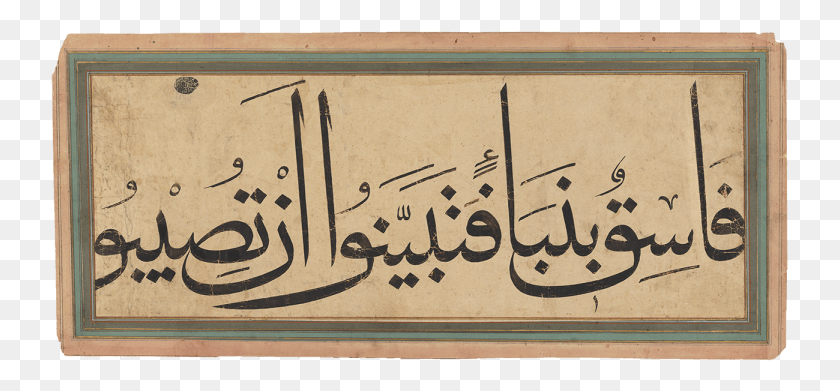 فَاسِقٌ بِنَبَأٍ فَتَبَيَّنُوا اَنْ تُصِيْبُو